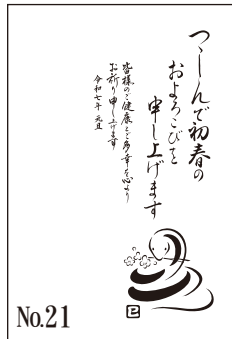 つゝしんで初春の
およろこびを
申し上げます
皆様のご健康とご多幸を心より
お祈り申し上げます
令和七年 元旦
巳
No.21